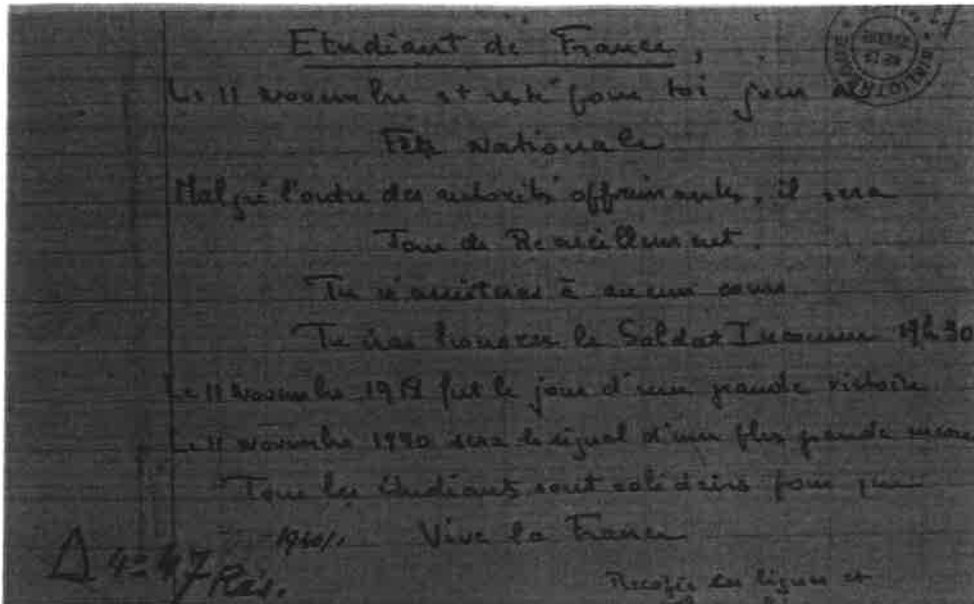 Etudiant de France,
Le 11 novembre est resté pour toi jour de
Fête Nationale
Malgré l'ordre des autorités opprimantes, il sera
Jour de Recueillement.
Tu n'assisteras à aucun cours
Tu iras honorer le Soldat Inconnu 17h30
Le 11 Novembre 1918 fut le jour d'une grande victoire
Le 11 novembre 1940 sera le signal d'une plus grande encore
Tous les étudiants sont solidaires pour que
Vive la France
1940/.
Δ 4° 47 Rés.
Recopie ces lignes et